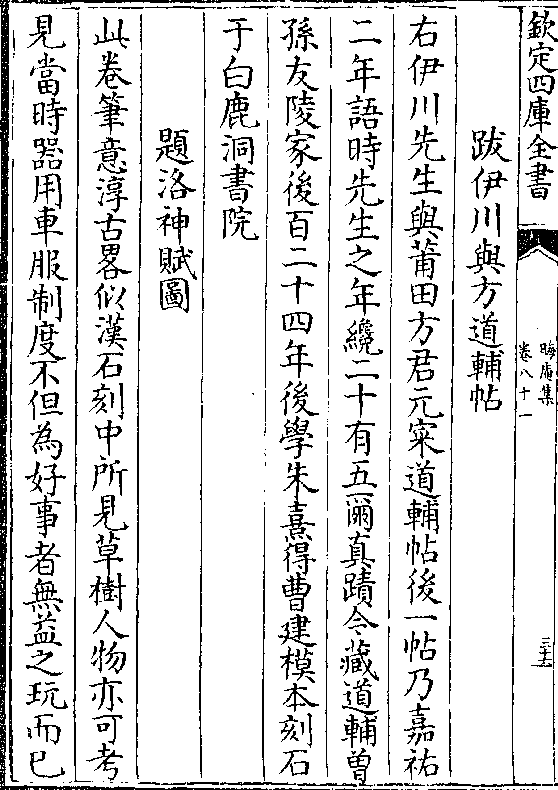 欽定四庫全書
晦庵集
卷八十一
三十五
跋伊川與方道輔帖
右伊川先生與莆田方君元寀道輔帖後一帖乃嘉祐
二年語時先生之年纔二十有五爾真蹟今藏道輔曾
孫友陵家後百二十四年後學朱熹得曹建模本刻石
于白鹿洞書院
題洛神賦圖
此卷筆意淳古畧似漢石刻中所見草樹人物亦可考
見當時器用車服制度不但為好事者無益之玩而已